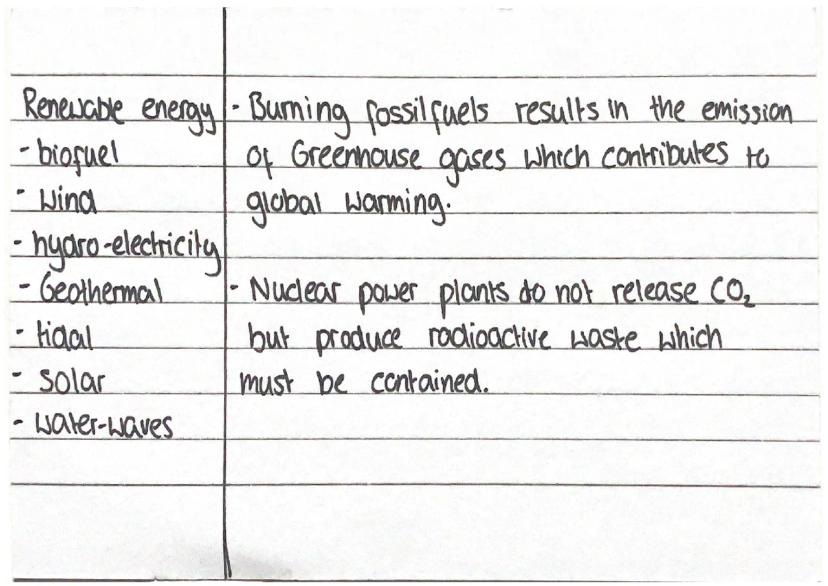 Renewable energy
- biofuel
- wind
- hydro-electricity
- Geothermal
- tidal
- solar
- water-waves
- Burning fossil fuels results in the emission
of Greenhouse gases which contributes to
global warming.
- Nuclear power plants do not release CO₂
but produce radioactive waste which
must be contained.